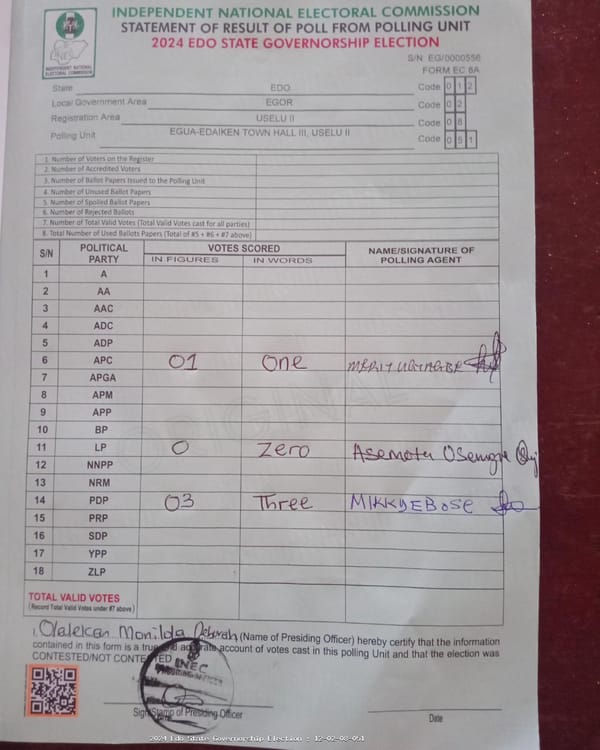 INDEPENDENT NATIONAL ELECTORAL COMMISSION
STATEMENT OF RESULT OF POLL FROM POLLING UNIT
2024 EDO STATE GOVERNORSHIP ELECTION
INDEPENDENT NATIONAL
ELECTORAL COMMISSION
S/N EG/0000556
FORM EC 8A
State EDO Code 0 1 2
Local Government Area EGOR Code 0 2
Registration Area USELU II Code 0 8
Polling Unit EGUA-EDAIKEN TOWN HALL III, USELU II Code 0 5 1
1. Number of Voters on the Register
2. Number of Accredited Voters
3. Number of Ballot Papers Issued to the Polling Unit
4. Number of Unused Ballot Papers
5. Number of Spoiled Ballot Papers
6. Number of Rejected Ballots
7. Number of Total Valid Votes (Total Valid Votes cast for all parties)
8. Total Number of Used Ballots Papers (Total of #5 + #6 + #7 above)
S/N POLITICAL PARTY VOTES SCORED NAME/SIGNATURE OF POLLING AGENT
IN FIGURES IN WORDS
1 A
2 AA
3 AAC
4 ADC
5 ADP
6 APC 01 One
7 APGA
8 APM
9 APP
10 BP
11 LP 0 Zero Asemota
12 NNPP
13 NRM
14 PDP 03 Three MIKKYEBOSE
15 PRP
16 SDP
17 YPP
18 ZLP
TOTAL VALID VOTES
(Record Total Valid Votes under #7 above)
I, Olalekan Deborah (Name of Presiding Officer) hereby certify that the information
contained in this form is a true and accurate account of votes cast in this polling Unit and that the election was
CONTESTED/NOT CONTESTED
INEC
PRESIDING OFFICER
Sign/Stamp of Presiding Officer
Date
2024 Edo State Governorship Election : 12-02-08-051